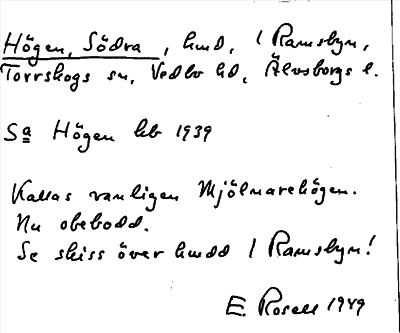 Högen, Södra, hmd, / Ramsbyn,
Torrskogs sn, Vedbo hd, Älvsborgs l.
Sa Högen kb 1939
Kallas vanligen Mjölnarehögen.
Nu obebodd.
Se skiss över hmdd / Ramsbyn!
E. Rosell 1949